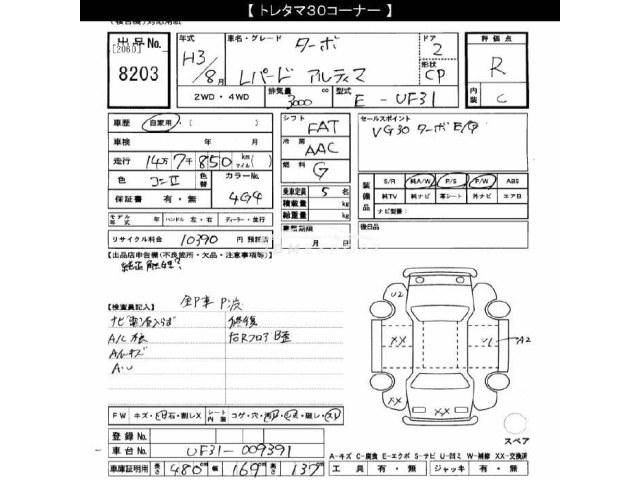 【 トレタマ30コーナー 】
出品No.
[2060]
8203
年式
H3/8月
車名・グレード
ターボ
Lパード アルティマ
ドア
2
形状
CP
評価点
R
内装
C
2WD・4WD
排気量
3000 cc
型式
E - UF31
車歴 自家用・( )
車検 年 月
走行 14万7千850 km マイル( )
色 コンII
色替
カラーNo.
4G4
保証書 有・無
モデル年式 年 ハンドル 左・右 ディーラー・並行
リサイクル料金 10390 円 預託済
シフト
FAT
冷房
AAC
燃料
G
乗車定員 5 名
積載量 kg
総重量 kg
月 日
セールスポイント
VG30 ターボ E/G
装備品
S/R 純A/W P/S P/W ABS
純TV 純ナビ 革シート 外ナビ エアB
ナビ型番:
後日品
【出品店申告欄(不良箇所・欠品・注意事項等)】
【検査員記入】
A/C
A/Wキズ
修復
右Rフロア
U2
XX
XX
A2
XX
FW
シート内装
コゲ・穴
スペア
登録No.
車台No. UF31-009391
車庫証明用 長さ 480 cm 幅 169 cm 高さ 137 cm
A-キズ C-腐食 E-エクボ S-サビ U-凹ミ W-補修 XX-交換済
工具 有・無 ジャッキ 有・無